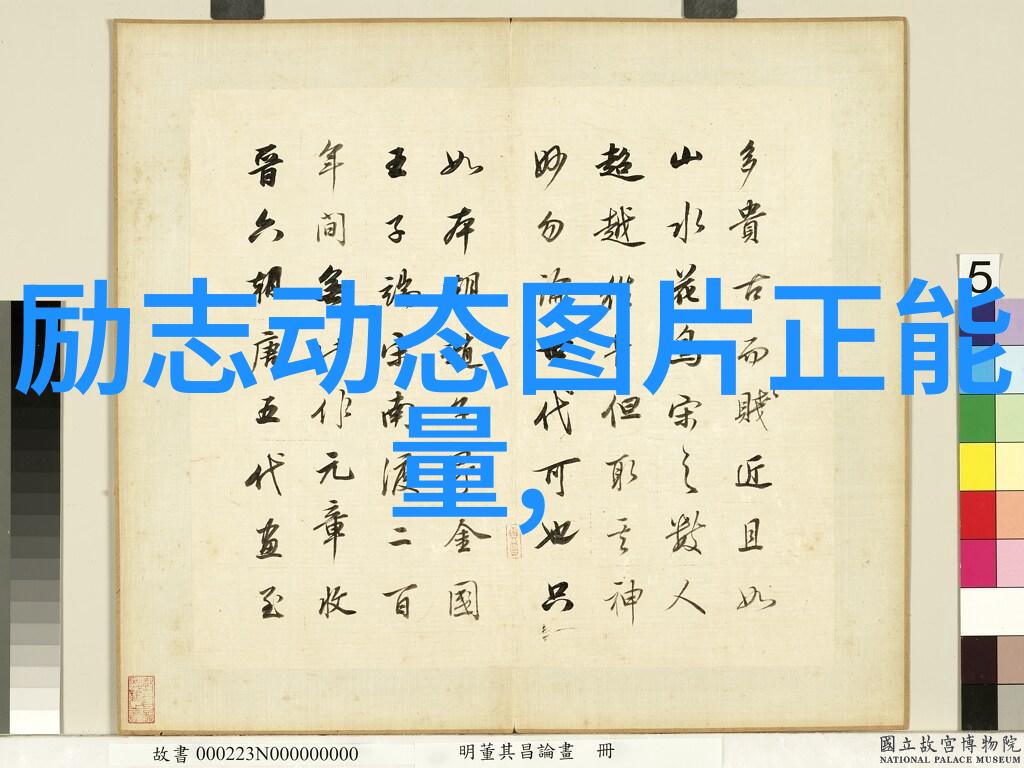 励志动态图片正能
量,
多貴古而賤近且如
山水花鳥宋之數人
超越但取其神
妙勿論世代可也只
如本朝趙子金國
王子端宋南渡二百
年間無作元章收
晉六朝唐五代畫至
5
故書 000223N000000000
明董其昌論畫 冊
國立故宮博物院
NATIONAL PALACE MUSEUM